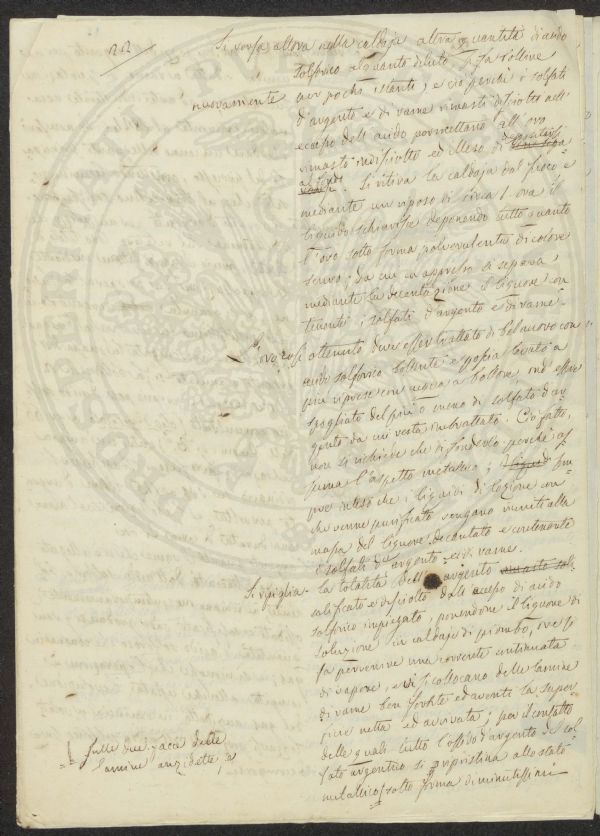 22
Si versa allora nella caldaja altra quantità di acido
solforico alquanto diluto e si fa bollire
nuovamente per pochi istanti; e ciò perchè i solfati
d'argento e di rame rimasti disciolti nell'
eccesso dell'acido permettano all'oro
rimasto indisciolto ed illeso di depositarsi
a fondo. Si ritira la caldaja dal fuoco e
mediante un riposo di circa 1. ora il
liquido schiarisce deponendo tutto quanto
l'oro sotto forma polverulenta di colore
scuro; da cui in appresso si separa
mediante la decantazione il liquore con
tenenti i solfati d'argento e di rame.
L'oro così ottenuto deve esser trattato di bel nuovo con
acido solforico bollente e poscia lavato a
più riprese con acqua a bollore, onde essere
spogliato del più o meno di solfato d'ar
gento da cui resta imbrattato. Ciò fatto,
non si richiede che di fonderlo perchè as
suma l'aspetto metallico; sem
pre inteso che i liquidi di lozione con
che venne purificato vengano riuniti alla
massa del liquore decantato e contenente
i solfati d'argento e di rame.
Si ripiglia la totalità dell'argento
salificato e disciolto dall'eccesso di acido
solforico impiegato, ponendone il liquore di
soluzione in caldaje di piombo, ove si
fa pervenire una corrente continuata
di vapore, e vi si collocano delle lamine
di rame ben forbite ed aventi la super
ficie netta ed avvivata; per il contatto
delle quali tutto l'ossido d'argento del sol
fato argentico si ripristina allo stato
metallico sotto forma di minutissimi
sulle due facce delle
lamine anzidette, e